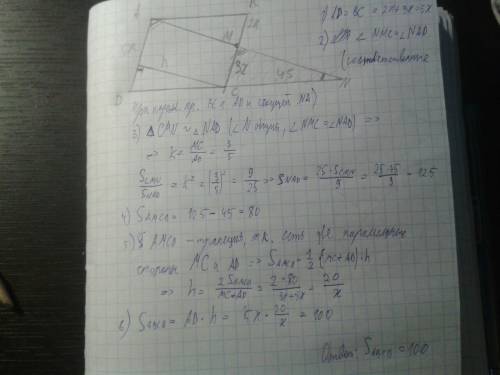 A
B
2x
M
5x
h
3x
45
D
C
N
1) AD = BC = 2x+3x=5x
2) ∠NMC=∠NAD
(соответственные
при парал. пр. BC и AD и секущей NA)
3) △CMN ~ △NAD (∠N общий, ∠NMC=∠NAD) =>
=> k= MC/AD = 3/5
S CMN / S NAD = k² = (3/5)² = 9/25 => S NAD = 25·S CMN / 9 = 25·45 / 9 = 125
4) S AMCD = 125 - 45 = 80
5) AMCD - трапеция, т.к. есть две параллельные
стороны MC и AD => S AMCD = 1/2 (MC+AD)·h
=> h = 2 S AMCD / MC+AD = 2·80 / 3x+5x = 20/x
6) S ABCD = AD · h = 5x · 20/x = 100
Ответ: S ABCD = 100